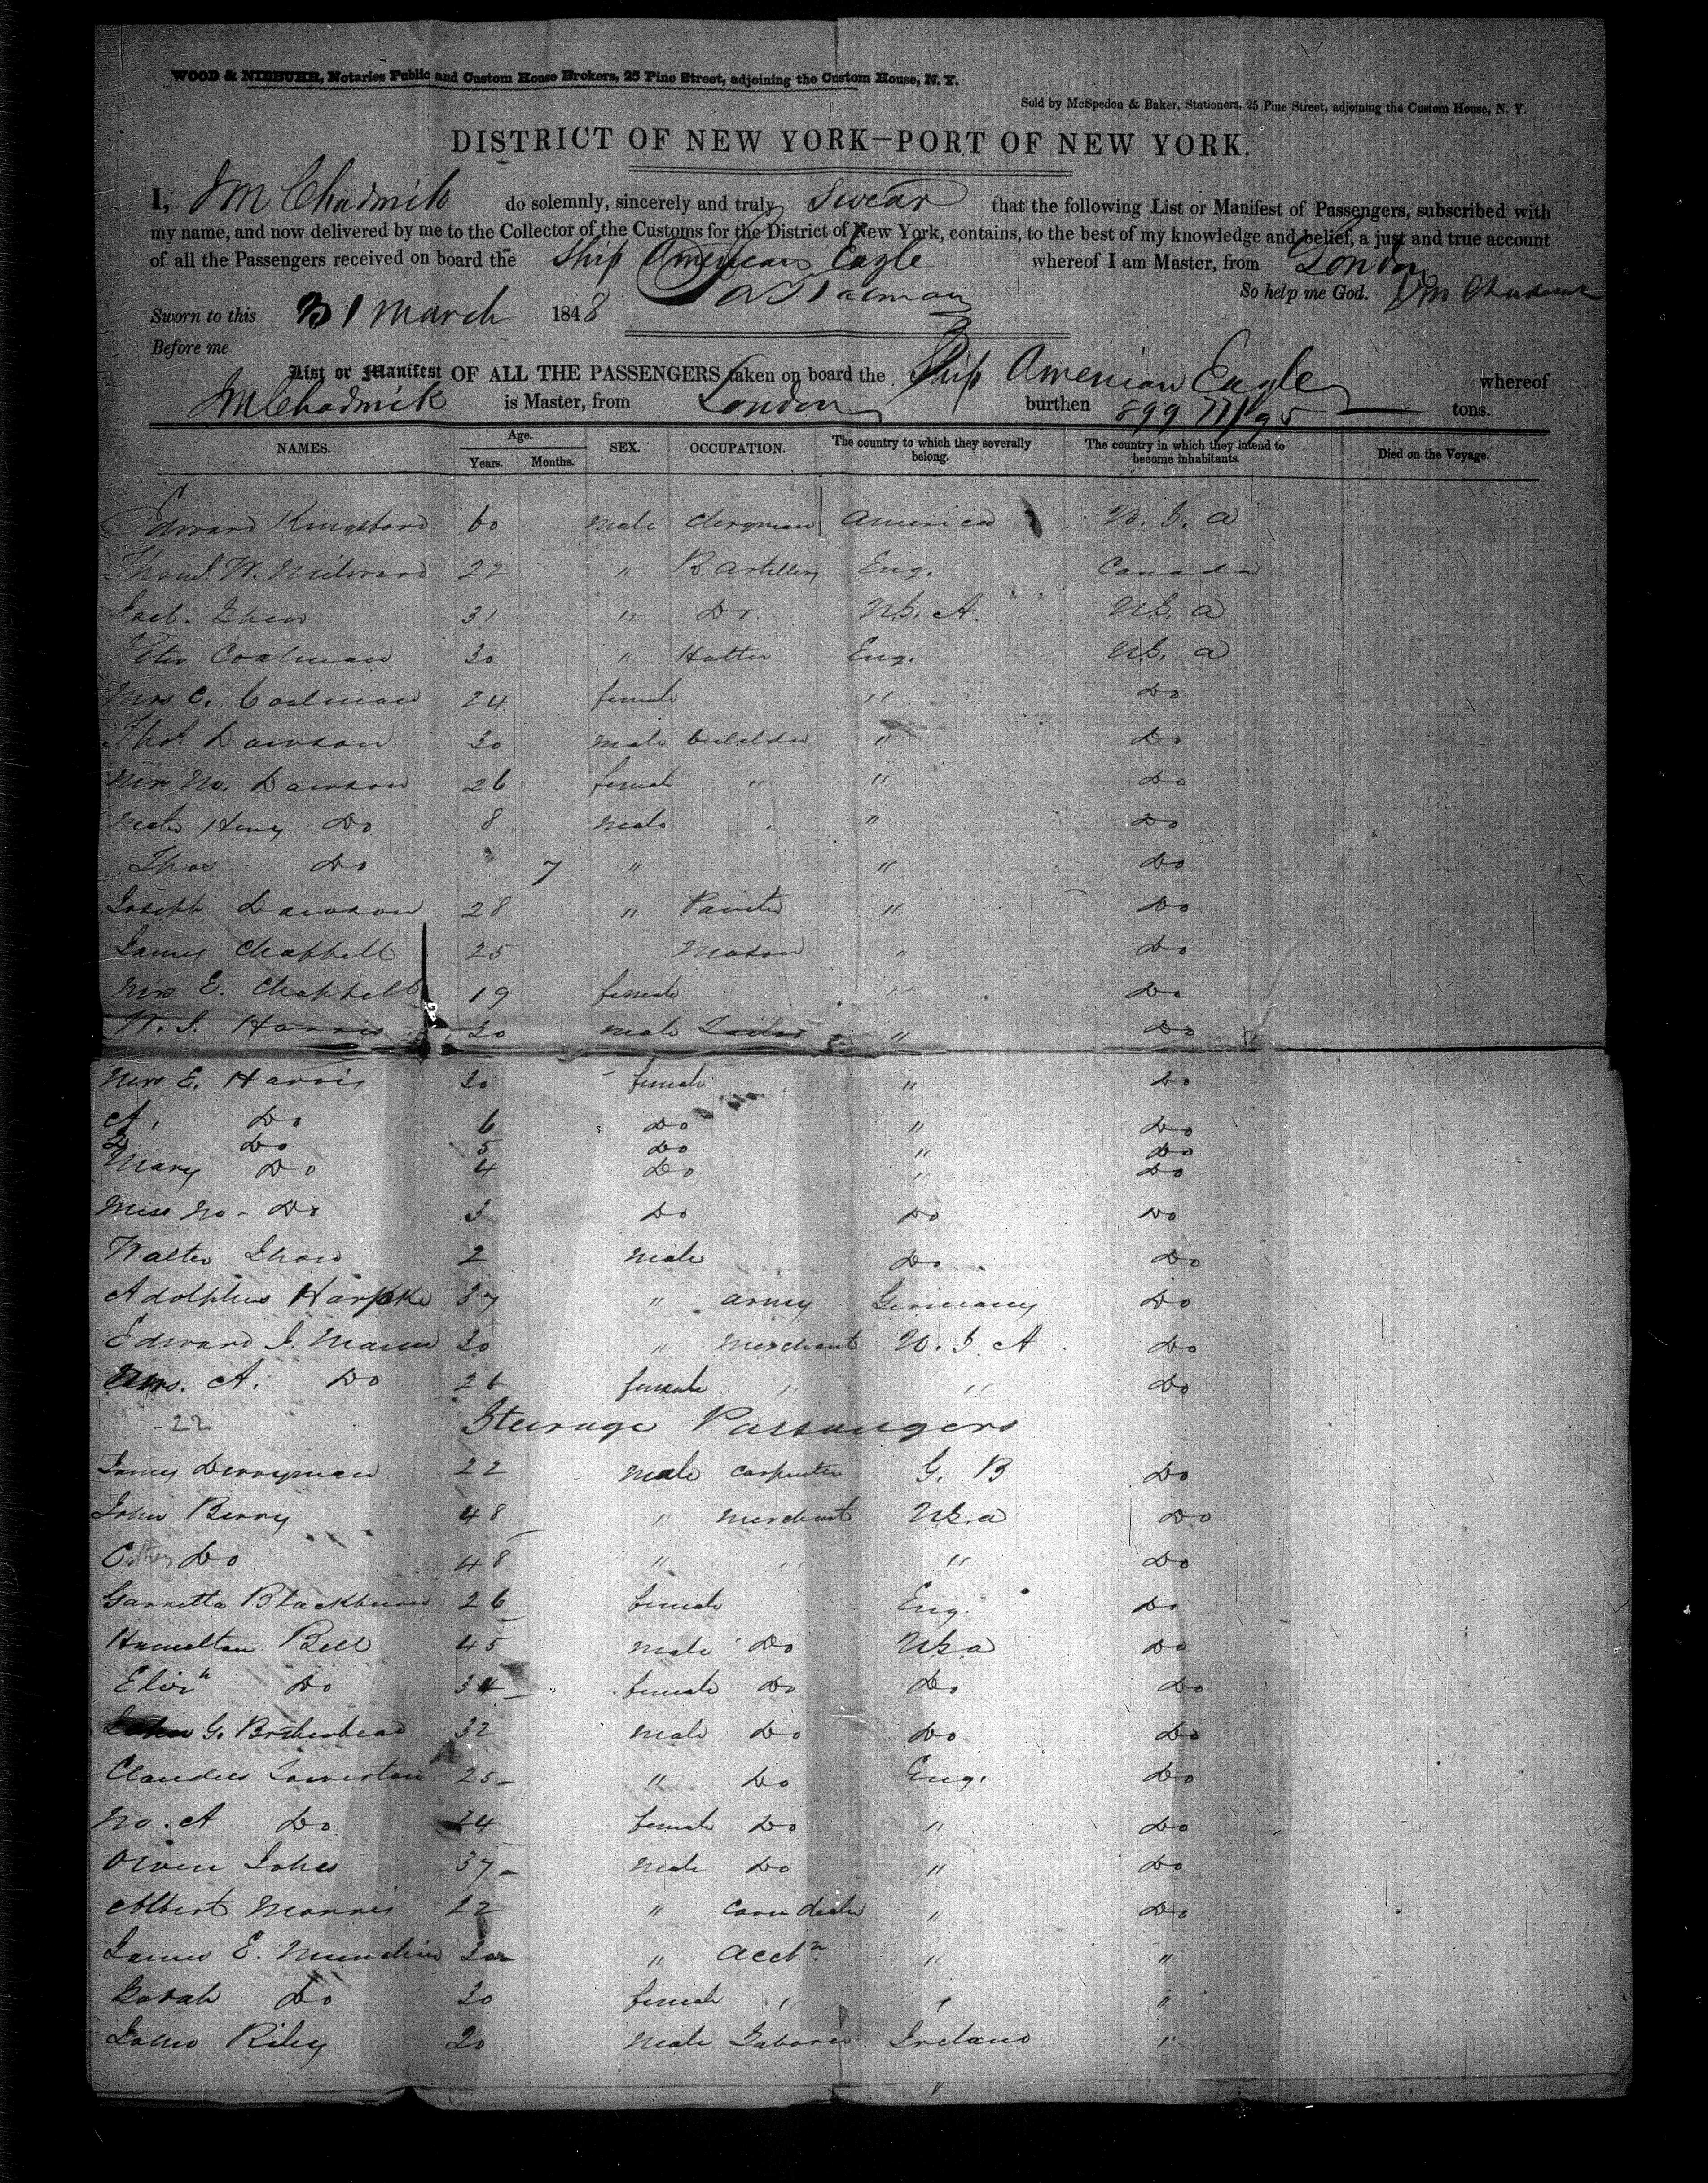 WOOD & NIEBUHR, Notaries Public and Custom House Brokers, 25 Pine Street, adjoining the Custom House, N. Y.
Sold by McSpedon & Baker, Stationers, 25 Pine Street, adjoining the Custom House, N. Y.
DISTRICT OF NEW YORK—PORT OF NEW YORK.
I, J M Chadwick do solemnly, sincerely and truly swear that the following List or Manifest of Passengers, subscribed with
my name, and now delivered by me to the Collector of the Customs for the District of New York, contains, to the best of my knowledge and belief, a just and true account
of all the Passengers received on board the Ship American Eagle whereof I am Master, from London
So help me God. J M Chadwick
Sworn to this 31 March 1848
Before me
List or Manifest OF ALL THE PASSENGERS taken on board the Ship American Eagle whereof
J M Chadwick is Master, from London burthen 899 77/95 tons.
NAMES. Age. Years. Months. SEX. OCCUPATION. The country to which they severally belong. The country in which they intend to become inhabitants. Died on the Voyage.
Edward Kingsford 60 male Clergyman America U. S. A
Thos. W. Milward 22 " R. Artillery Eng. Canada
31 " Do. U.S. A. U.S. A
Peter Coalman 30 " Hatter Eng. U.S. A
Mrs C. Coalman 24 female " Do
Thos. Dawson 30 male builder " Do
Mrs M. Dawson 26 female " " Do
Master Henry Do 8 male " Do
Thos Do 7 " " Do
Joseph Dawson 28 " Painter " Do
James Chappell 25 Mason " Do
Mrs E. Chappell 19 female " Do
W. J. Harris 30 male Tailor " Do
Mrs E. Harris 30 female " Do
A. Do 6 Do " Do
Do 5 Do " Do
Mary Do 4 Do " Do
Miss M. Do 3 Do Do Do
Walter Shaw 2 male Do Do
Adolphus Harpke 37 " army Germany Do
Edward J. 30 " Merchant U. S. A Do
Mrs. A. Do 26 female " " Do
22 Steerage Passengers
James Derryman 22 male Carpenter G. B Do
John Berry 48 " Merchant U.S.a Do
Do 48 " " " Do
Garretta Blackburn 26 female Eng. Do
Hamilton Bell 45 male Do U.S.a Do
Elizh Do 34 female Do Do Do
G. 32 male Do Do Do
25 " Do Eng. Do
M. A Do 24 female Do " Do
Owen Johes 37 male Do " Do
Albert Morris 22 " Corn dealer " Do
James E. 30 " Acctn. " "
Sarah Do 30 female " " "
James Riley 20 male Laborer Ireland "
"